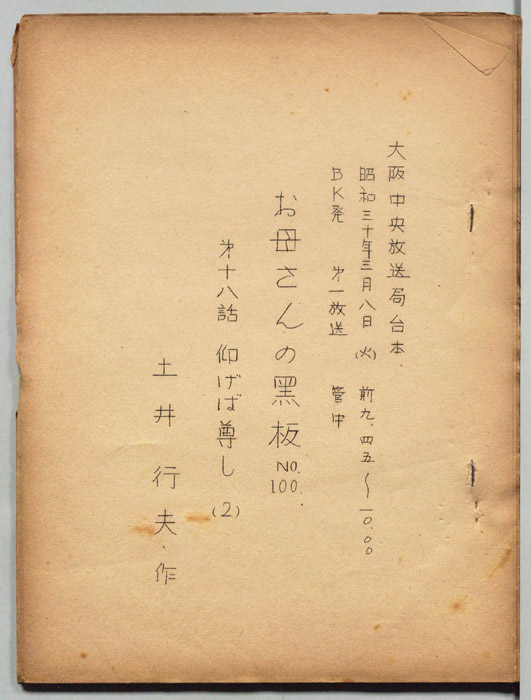 大阪中央放送局台本.
昭和三十年三月八日(火) 前九、四五〜一〇.〇〇
BK発 才一放送 管中
お母さんの黑板 NO.100.
才十八話 仰げば尊し(2)
土井行夫、作